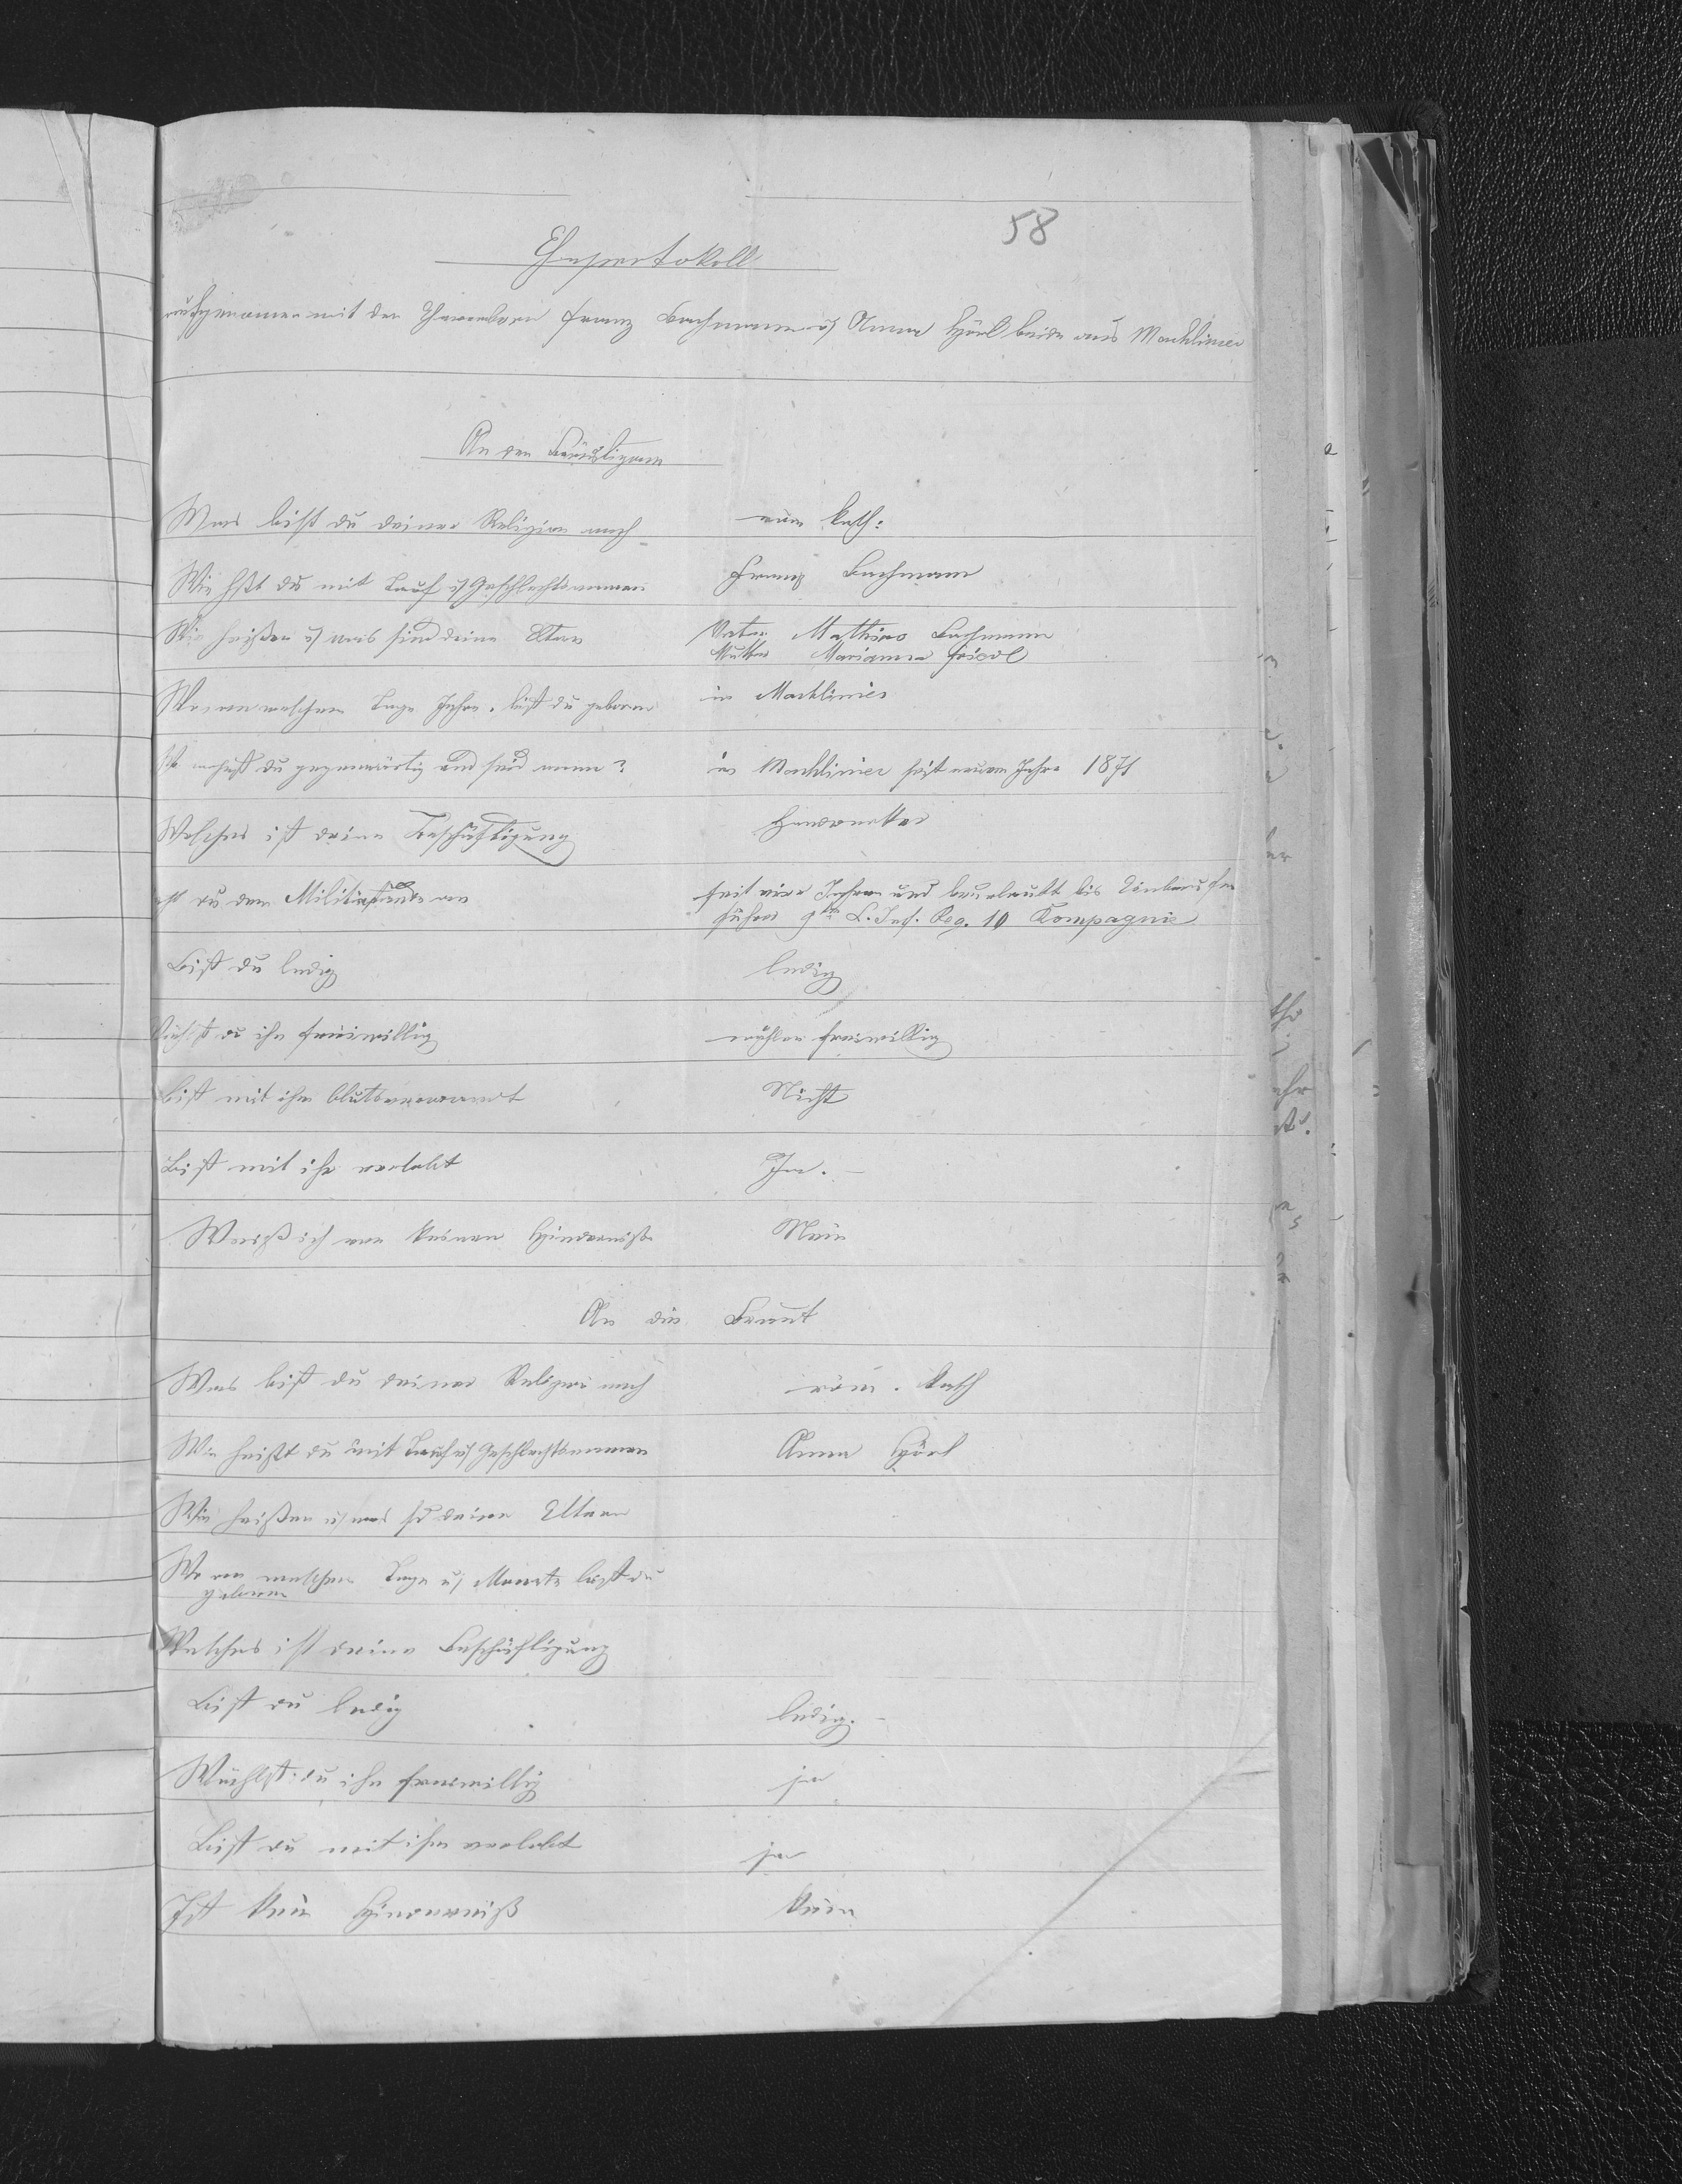 58
Eheprotokoll
aufgenomen mit den Franz Bachmann u Anna Hörl beide aus Machliniec
An den Bräutigam
Was bist du deiner Religion nach röm kath:
Wie hßt du mit Tauf u Geschlechtsnamen Franz Bachmann
Wie heißen u was sind deine Eltern Vater Mathias Bachmann
Mutter Marianna
Wo, an welchem Tage Jahre, bist du geboren in Machliniec
Wo wohnst du gegenwärtig und seid wann? in Machliniec seit Jahre 1871
Welches ist deine Beschäftigung
du dem Militärstande an seit vier Jahren und beurlaubt bis Einberufen
9ten L. Inf. Reg. 10 Kompagnie
Bist du ledig ledig
Wählst du ihn freiwillig wählen freiwillig
bist mit ihr blutsverwandt Nicht
Bist mit ihr verlobt Ja. —
Weiß ich von keinem Hinderniße Nein
An die Braut
Was bist du deiner Religion nach röm. kath
Wie heißt du mit Tauf u Geschlechtsnamen Anna Hörl
Wie heißen u was sd deine Eltern
Wo an welchem Tage u Monate bist du
geboren
Welches ist deine Beschäftigung
Bist du ledig ledig. —
Wählst du ihn freiwillig ja
Bist du mit ihm verlobt ja
Ist kein Hinderniß kein